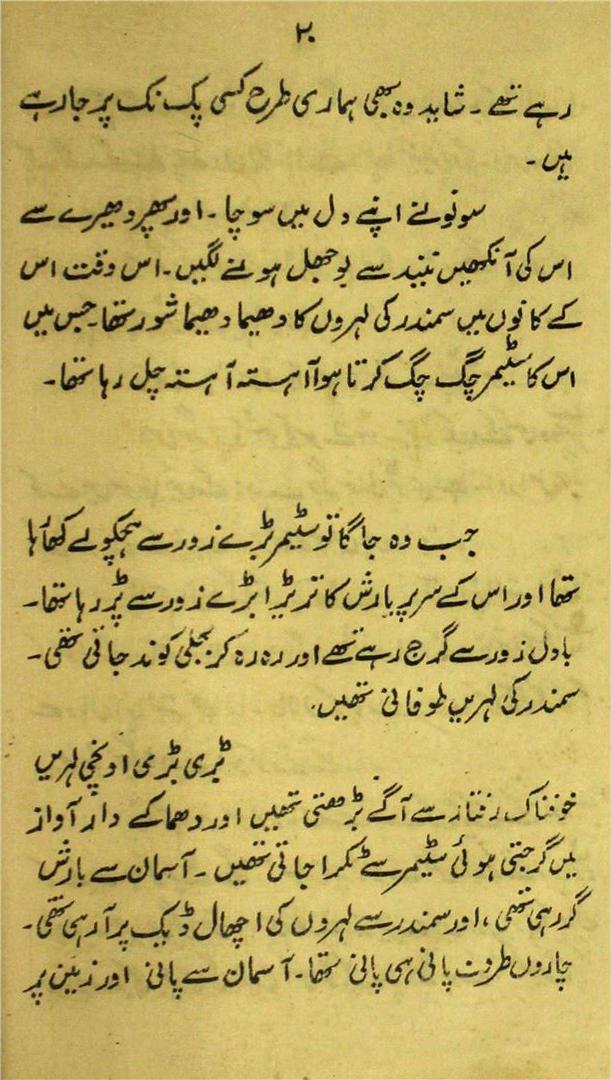 ۲۰
رہے تھے ۔ شاید وہ بھی ہماری طرح کسی پک نک پر جا رہے
ہیں ۔
سونونے اپنے دل میں سوچا ۔ اور پھر دھیرے سے
اس کی آنکھیں نیند سے بوجھل ہونے لگیں ۔ اس وقت اس
کے کانوں میں سمندر کی لہروں کا دھیما دھیما شور تھا ۔ جس میں
اس کا سٹیمر چگ چگ کرتا ہوا آہستہ آہستہ چل رہا تھا ۔
جب وہ جاگا تو سٹیمر بڑے زور سے ہچکولے کھا رہا
تھا اور اس کے سر پر بارش کا تڑیڑا بڑے زور سے پڑ رہا تھا ۔
بادل زور سے گرج رہے تھے اور رہ رہ کر بجلی کوند جاتی تھی ۔
سمندر کی لہریں طوفانی تھیں ۔
بڑی بڑی اونچی لہریں
خوفناک رفتار سے آگے بڑھتی تھیں اور دھماکے دار آواز
میں گرجتی ہوئی سٹیمر سے ٹکرا جاتی تھیں ۔ آسمان سے بارش
گر رہی تھی ، اور سمندر سے لہروں کی اچھال ڈیک پر آ رہی تھی ۔
چاروں طرف پانی ہی پانی تھا ۔ آسمان سے پانی اور زمین پر